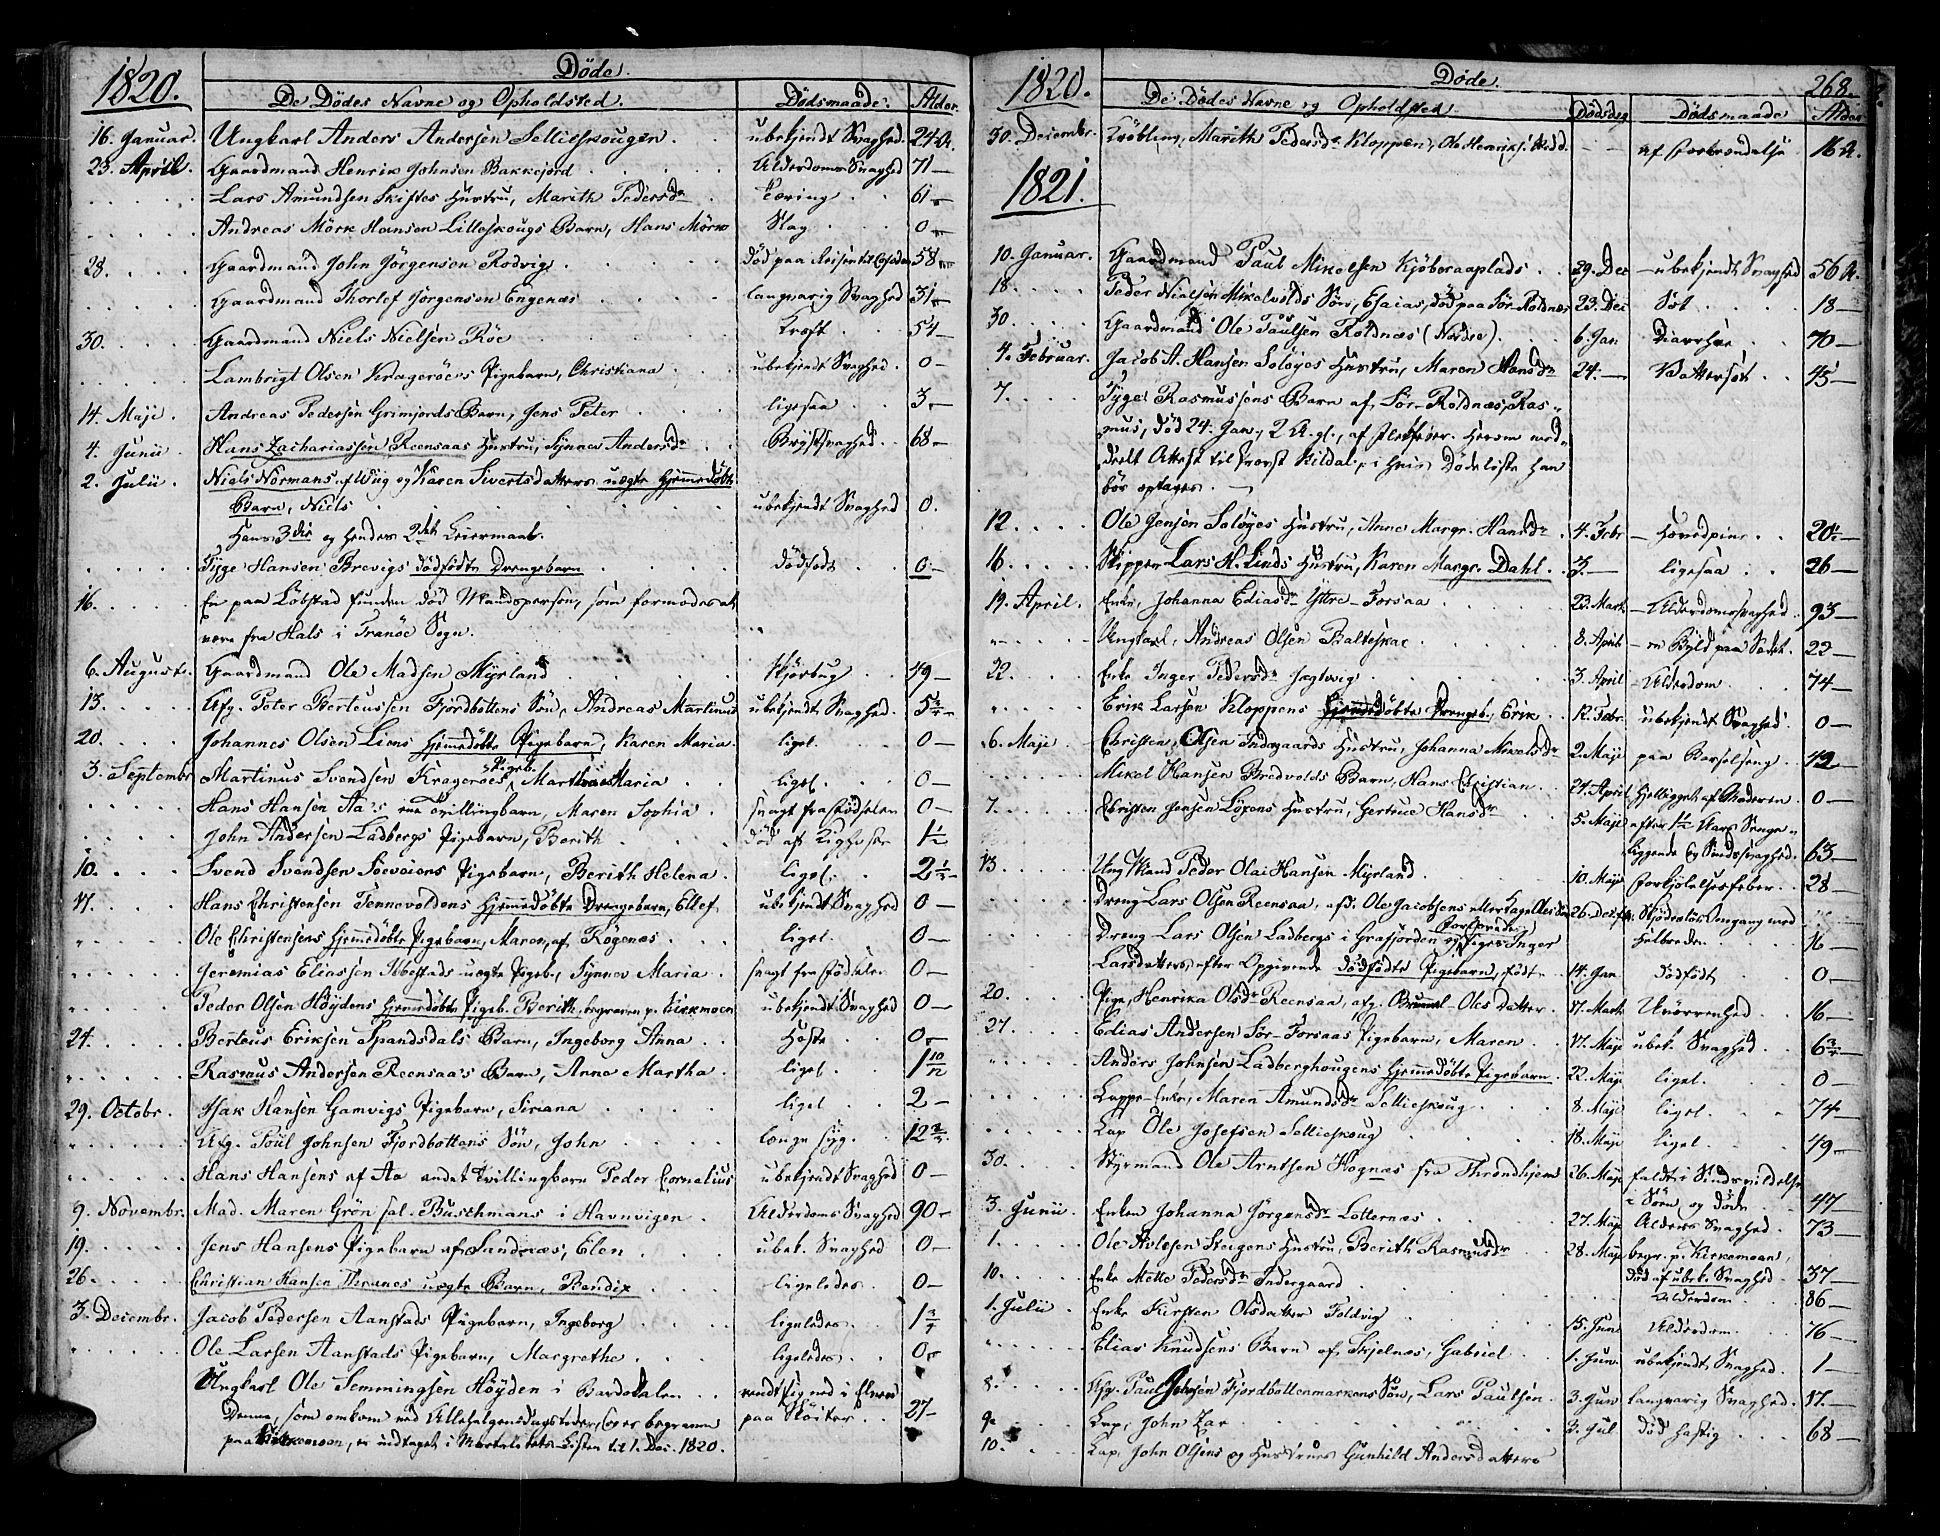 1820.
Döde.
De Dödes Navne og Opholdsted. Dödsmaade. Alder.
16. Januar. Ungkarl Anders Andersen Sellieskougen. ubekjendt Svaghed. 24 A.
23. April. Gaardmand Henrik Johnsen Bakkejord Alderdoms Svaghed 71 —
Lars Amundsen Skiftes Hustru, Marith Pedersdr Tæring 61 —
Andreas Mörk Hansen Lilleskougs Barn, Hans Mörk Slag 0 —
28. Gaardmand John Jörgensen Rodvig död paa Reisen til 58 —
Gaardmand Thorlef Jörgensen Engenæs langvarig Svaghed 31 —
30. Gaardmand Niels Nielsen Röe Kræft 54 —
Lambrigt Olsen Krageröes Pigebarn, Christiana ubekjendt Svaghed. 0 —
14. Maji. Andreas Pedersen Grimjords Barn, Jens Peter ligesaa 3 —
4. Junii. Hans Zachariassen Reensaas Hustru, Synnev Andersdr Brystsvaghed. 68 —
2. Julii. Niels Normans af Wiig og Karen Sivertsdatters uægte hjemmedöbte
Barn, Niels ubekjendt Svaghed 0.
Hans 3die og hendes 2det Leiermaal.
Tyge Hansen Brevigs dödfödte Drengebarn dödfödt 0 —
16. En paa Löbstad funden död Mandsperson, som formodes at
være fra Hals i Tranöe Sogn.
6. August. Gaardmand Ole Madsen Myrland Skjörbug 49 —
13. Afg. Peter Berteussen Fjordbottens Sön, Andreas Martinus ubekjendt Svaghed. 5 3/4 —
20. Johannes Olsen Liens hjemmedöbte Pigebarn, Karen Maria. ligel. 0 —
3. Septembr. Martinus Svendsen Krageröes Pigeb. Martha Maria ligel. 0 —
Hans Hansen Aa's ene Tvillingbarn, Maren Sophia. svagt fra Födselen 0 —
John Andersen Ladbergs Pigebarn, Berith död af Kighoste 1 1/2
10. Svend Svendsen Soeveiens Pigebarn, Berith Helena. ligel. 2 1/2 —
17. Hans Christensen Tennevoldens hjemmedöbte Drengebarn, Ellef ubekjendt Svaghed 0 —
Ole Christensens hjemmedöbte Pigebarn, Maren, af Rögenæs ligel. 0 —
Jeremias Eliassen Ibestads uægte Pigeb., Synnev Maria svagt fra Födselen 0 —
Peder Olsen Höydens hjemmedöbte Pigeb. Berith, begraven p. Kirkmoen ubekjendt Svaghed 0 —
24. Berteus Eriksen Spandsdals Barn, Ingeborg Anna Hoste 0 —
Rasmus Andersen Reensaa's Barn, Anne Martha ligel. 1 10/12
29. Octobr. Isak Hansen Gamvigs Pigebarn, Siriana ligel 2 —
Afg. Poul Johnsen Fjordbottens Sön, John længe syg. 12 3/4
Hans Hansens af Aa andet Tvillingbarn Peder Cornelius ubekjendt Svaghed 0 —
9. Novembr. Mad. Maren Grön sal. Buschmans i Havnvigen. Alderdoms Svaghed 90 —
19. Jens Hansens Pigebarn af Sandnæs, Elen ubek. Svaghed 0 —
26. Christian Hansen Thranes uægte Barn, Bendix ligeledes 0 —
3. Decembr. Jacob Pedersen Aanstads Pigebarn, Ingeborg ligeledes 1 3/4
Ole Larsen Aanstads Pigebarn, Margrethe ligeledes 0 —
Ungkarl Ole Semmingsen Höyden i Bardodalen rendt sig ned i Elven
Denne, som omkom ved Allehelgensdagstider, og er begraven paa Sköiter 27 —
paa Kirkemoen, er indtaget i Mortalitets-Listen til 1. Dec. 1820.
1820. Döde. 268.
De Dödes Navne og Opholdsted. Dödsdag Dödsmaade Alder
30. Decembr. Kröbling, Marith Pedersdr Kloppen, Ole Henriks. Stedd. af Forbrændelse 16 A.
1821.
10. Januar. Gaardmand Paul Mikelsen Kjöberaaplads 29. Dec ubekjendt Svaghed 56 A.
18. Peder Nielsen Mikelvolds Sön, Esaias, död paa Sör-Roldnæs 23. Dec Sot 18 —
30. Gaardmand Ole Paulsen Roldnæs (Nordre) 6. Jan Diarrhee 70 —
4. Februar. Jacob A. Hansen Solöyes Hustru, Maren Hansdr 24. — Vattersot 45 —
7. Tyge Rasmussens Barn af Sör-Roldnæs, Ras-
mus, död 24. Jan., 2 A. gl., af Herom med-
deelt Attest til Provst Kildal, i hvis Dödeliste han
bör optages. —
12. Ole Jensen Solöyes Hustru, Anne Margr. Hansdr 4. Febr Hovedpine 20 1/2 —
16. Skipper Lars H. Linds Hustru, Karen Margr. Dahl. 3. — ligesaa 26 —
19. April. Enke, Johanna Ediasdr Yttre-Forsaa 23. Mart. Alderdomssvaghed 93
Ungkarl, Andreas Olsen Balteskar 8. April en Byld paa Sædet. 22 —
22. Enke Inger Pedersdr Jægtvig 3. April Alderdom 74 —
Erik Larsen Kloppens hjemmedöbte Drengeb., Erik 12. Febr. ubekjendt Svaghed 0 —
6. Maji Christen Olsen Indregaards Hustru, Johanna Mikelsdr 2. Maji paa Barselseng 42
Mikel Hansen Bredvolds Barn, Hans Christian 24. April ihielligget af Moderen 0 —
7. Christen Jensen Löxens Hustru, Gertrue Hansdr 5. Maji efter 1 1/2 Aars Senge-
liggende og Sindssvaghed. 63 —
13. Ung Mand Peder Olai Hansen Myrland 10. Maji Forkjölelsesfeber 28 —
Dreng Lars Olsen Reensaa, afd. Ole Jacobsens 26. Dec.
Dreng Lars Olsen Ladbergs i Grasfjorden og Pigen Inger 16 —
Larsdatters, efter Opgivende dödfödte Pigebarn, födt 14. Jan dödfödt 0 —
20. Pige, Henrika Olsdr Reensaa, afg. Olesdatter 17. Marts Uvorrenhed 16 —
27. Edias Andersen Sör-Forsaas Pigebarn, Maren 17. Maji ubek. Svaghed 6 3/4 —
Anders Johnsen Ladberghougens hjemmedöbte Pigebarn. 22. Maji ligel. 0 —
Lappe-Enke, Maren Amundsdr Sellieskoug 8. Maji ligel 74 —
Lap Ole Josefsen Sellieskoug 18. Maji ligel. 49 —
30. Styrmand Ole Arntsen Hognæs fra Throndhjem 26. Maji faldt i Sindsvildelse
i Söen og döde 47 —
3. Junii. Enken Johanna Jörgensdr Lotternæs 27. Maji Alders Svaghed. 73 —
1. Ole Avlesen Steigens Hustru, Berith Rasmusdr 28. Maji begr. p. Kirkemoen,
död af ubek. Svaghed 37 —
10. Enke Mette Pedersdr Indergaard Alderdom 86 —
1. Julii. Enke Kirsten Olsdatter Foldvig 15. Jun Alderdom 76 —
Elias Knudsens Barn af Skjelnæs, Gabriel 1. Jun. ubekjendt Svaghed. 1 —
8. Afg. Paul Johnsen Fjordbottenmarkens Sön, Lars Paulsen 3. Jun langvarig Svaghed. 17. —
9. Lap, John Zar 3. Jul död hastig 68 —
10. Lap, John Olsens og Hustrues Gunhild Andersdatters